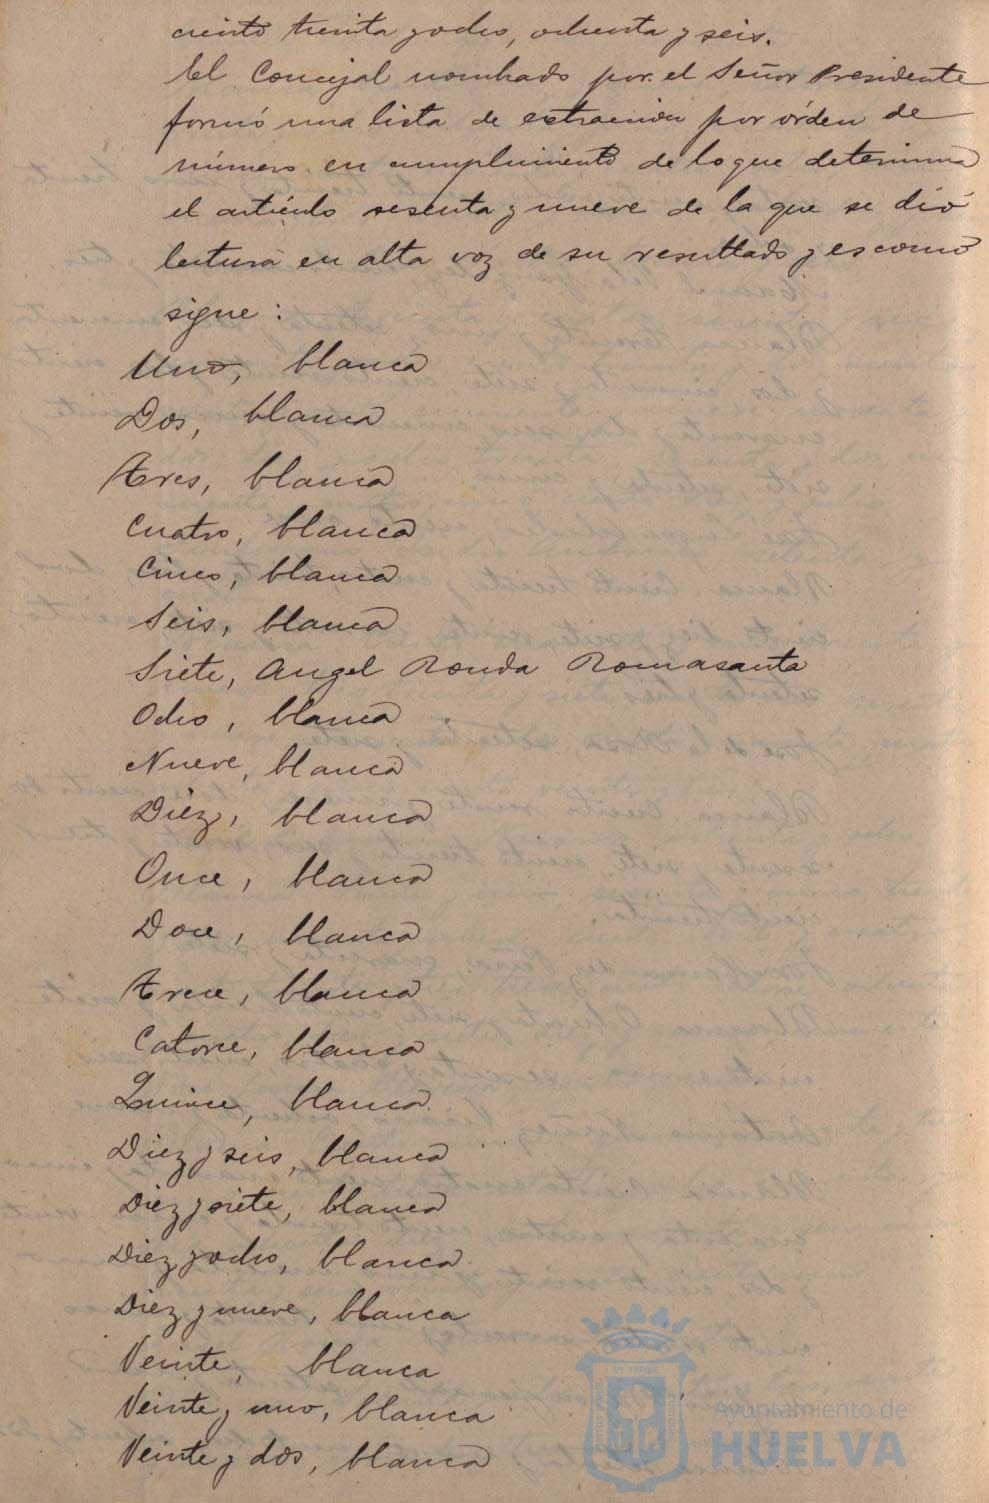 ciento treinta y ocho, ochenta y seis.
El Concejal nombrado por el Señor Presidente
formó una lista de extracción por órden de
número en cumplimiento de lo que determina
el artículo sesenta y nueve de la que se dió
lectura en alta voz de su resultado y es como
sigue:
Uno, blanca
Dos, blanca
Tres, blanca
Cuatro, blanca
Cinco, blanca
Seis, blanca
Siete, Angel Ronda Romasanta
Ocho, blanca
Nueve, blanca
Diez, blanca
Once, blanca
Doce, blanca
Trece, blanca
Catorce, blanca
Quince, blanca
Diez y seis, blanca
Diez y siete, blanca
Diez y ocho, blanca
Diez y nueve, blanca
Veinte, blanca
Veinte y uno, blanca
Veinte y dos, blanca
Ayuntamiento de
HUELVA